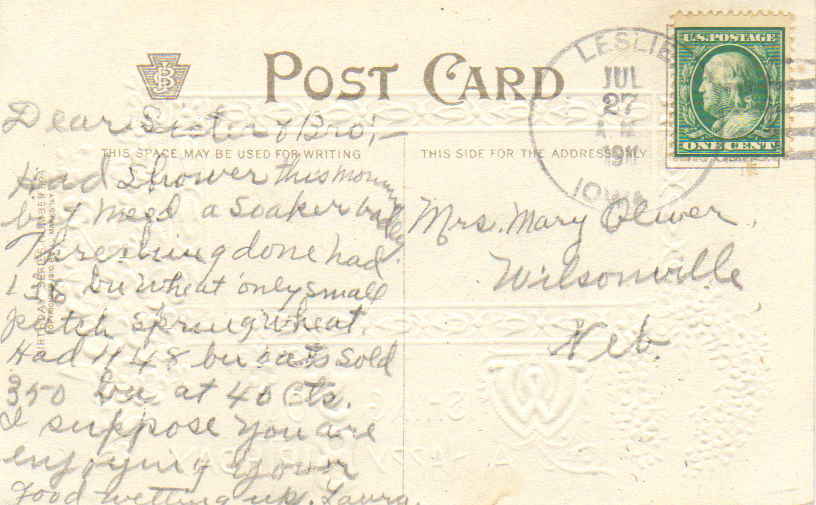 LESLIE
JUL
27
1911
IOWA
U.S. POSTAGE
ONE CENT
POST CARD
THIS SPACE MAY BE USED FOR WRITING
THIS SIDE FOR THE ADDRESS ONLY
Dear Sister & Bro,—
Had Shower this morning
but need a soaker badly
Threshing done had
138 bu wheat only small
patch spring wheat.
Had 448 bu oats sold
350 bu at 40 cts.
I suppose you are
enjoying your
Good wetting up. Laura.
Mrs. Mary Oliver,
Wilsonville
Neb.